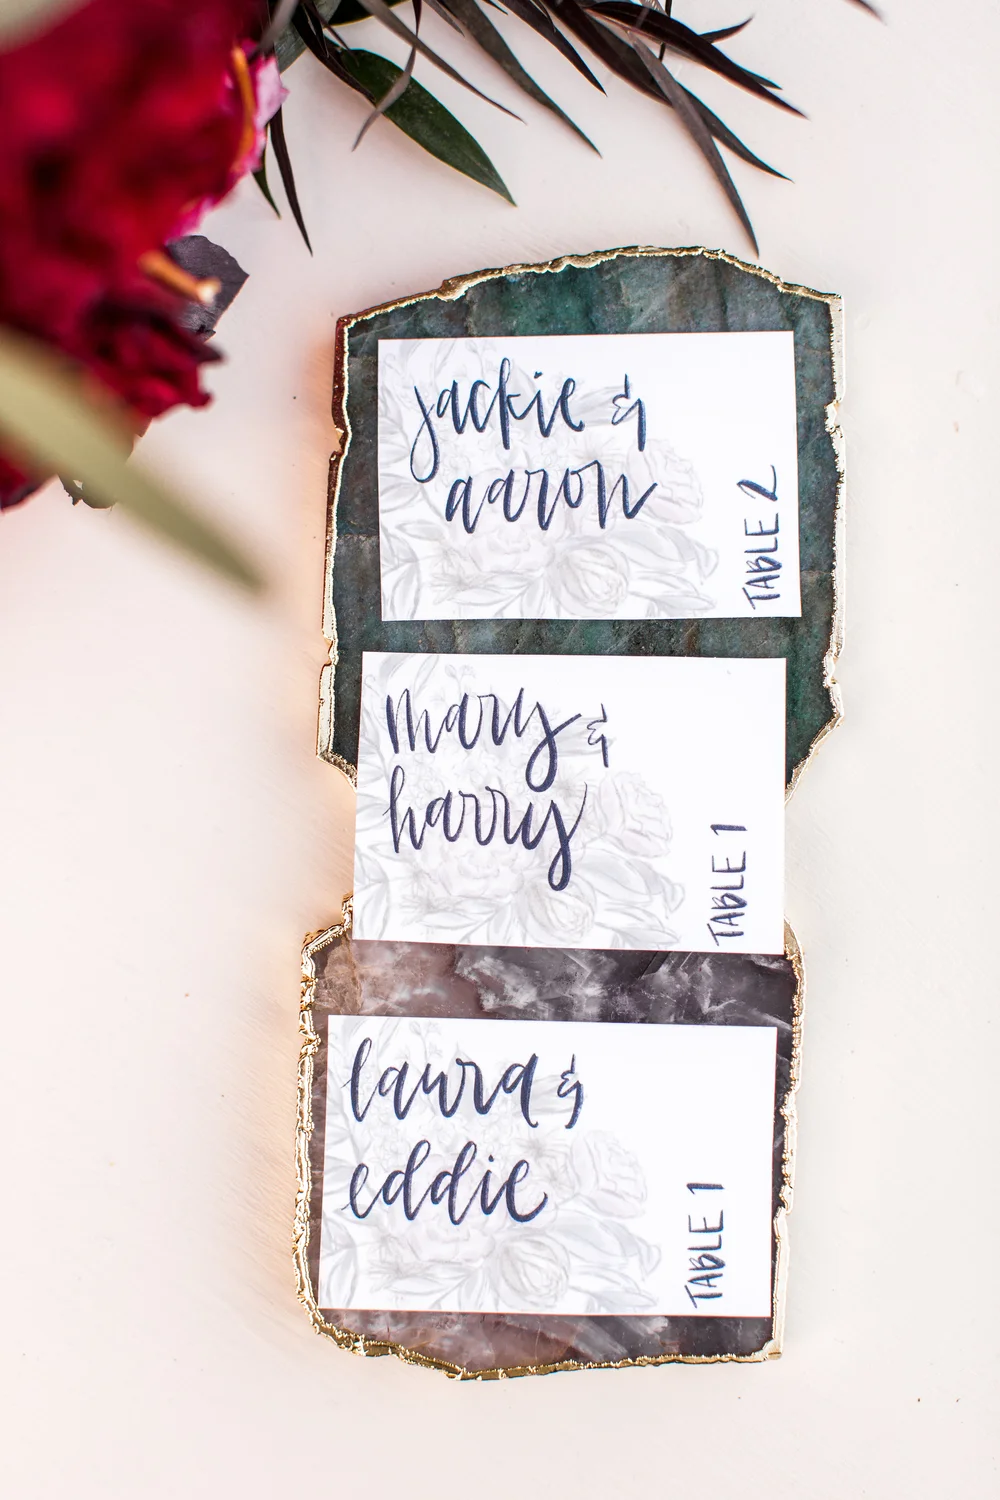 jackie &
aaron
TABLE 2
mary &
harry
TABLE 1
laura &
eddie
TABLE 1